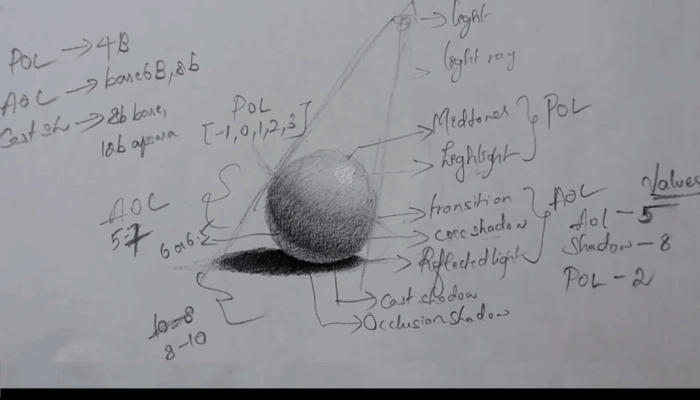 POL → 4B
AOC → base 6B, 8b
Cast sh → 8b base,
10b
POL
[-1, 0, 1, 2, 3]
AOC
5-7
6 or 6.5
10-8
8-10
light
light ray
Midtones
Highlight
POL
transition
core shadow
Reflected light
AOL
Cast shadow
Occlusion shadow
Values
AOL - 5
Shadow - 8
POL - 2